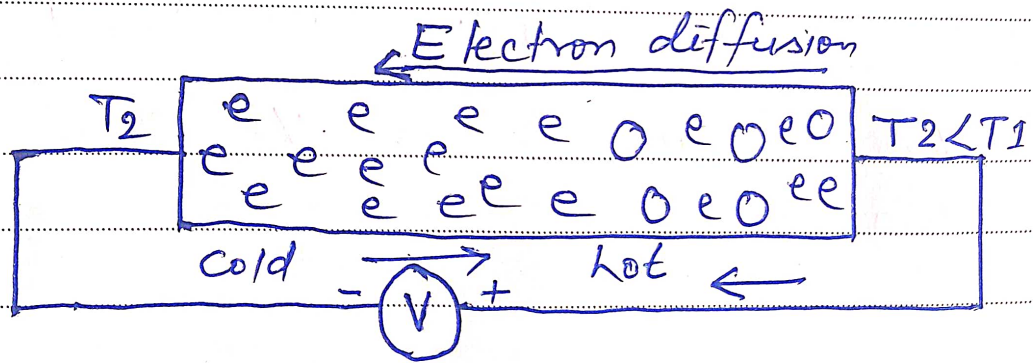 Electron diffusion
T2 e e e e O e O e O T2<T1
e e e e
e e e e e O e O e e
Cold hot
- V +